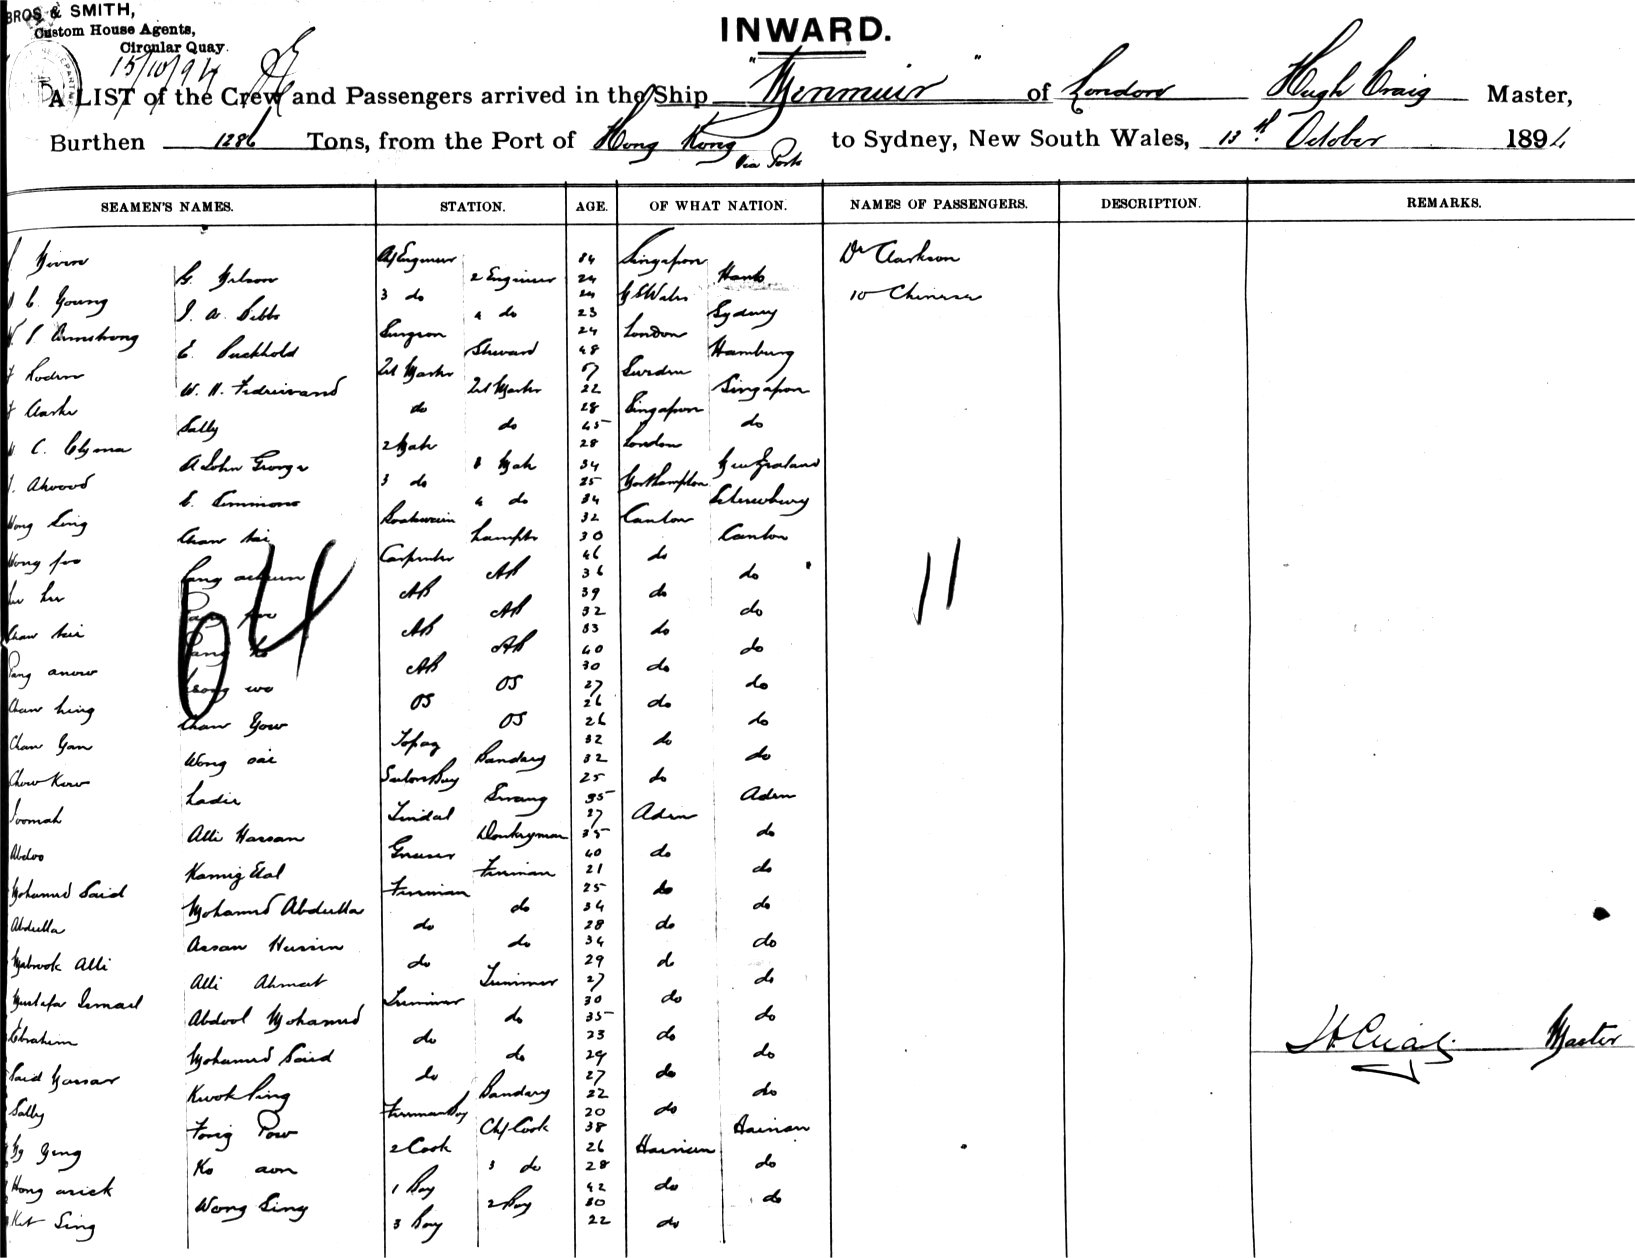 BROS & SMITH,
Custom House Agents,
Circular Quay.
15/10/94
INWARD.
A LIST of the Crew and Passengers arrived in the Ship "Menmuir" of London Hugh Craig Master,
Burthen 1286 Tons, from the Port of Hong Kong via Ports to Sydney, New South Wales, 13th October 1894
SEAMEN'S NAMES. STATION. AGE. OF WHAT NATION. NAMES OF PASSENGERS. DESCRIPTION. REMARKS.
Niven 34 Singapore Dr Clarkson
G. Nelson 2 Engineer 24 Hants
C. Young 3 do 24 N S Wales 10 Chinese
J. W. Sibbs 4 do 23 Sydney
Armstrong Surgeon 24 London
E. Puckhold Steward 48 Hamburg
57 Sweden
W. H. 22 Singapore
Clarke do 28 Singapore
Sally do 45 do
C. Clyma 2 Mate 28 London
A John George Mate 34 New Zealand
Atwood 3 do 25 Northampton
E. Simmons 4 do 34 Shrewsbury
Wong Sing Boatswain 32 Canton
Chaw kai Lamps 30 Canton
Wong foo Carpenter 46 do
AB 36 do
AB 39 do
64
11
AB 32 do
Chaw AB 33 do
AB 40 do
Pang AB 30 do
wo OS 27 do
Chaw hing OS 26 do
Chaw Yow OS 26 do
Chaw Yan Topaz 32 do
Wong sai Bandary 32 do
Chow Kow Sailors Boy 25 do
Ladie Serang 35 Aden
Joomah Tindal 27 Aden
Alli Hassan Donkeyman 35 do
Abdoo Greaser 40 do
Fireman 21 do
Mohamed Said Fireman 25 do
Mohamed Abdulla do 34 do
Abdulla do 28 do
Assan Hussin do 34 do
Mabrook Alli do 29 do
Alli Ahmat Trimmer 27 do
Mustafa Ismael Trimmer 30 do
Abdool Mohamed do 35 do
Ebrahim do 23 do
Mohamed Said do 29 do
Said Nassar do 27 do
Kwok Ping Bandary 22 do
Sally Fireman Boy 20 do
Fong Pow Chf Cook 38 Hainan
Ng Yeng 2 Cook 26 Hainan
Ko aon 3 do 28 do
Hong 1 Boy 42 do
Wong Sing 2 Boy 30 do
Ket Sing 3 Boy 22 do
H. Craig Master